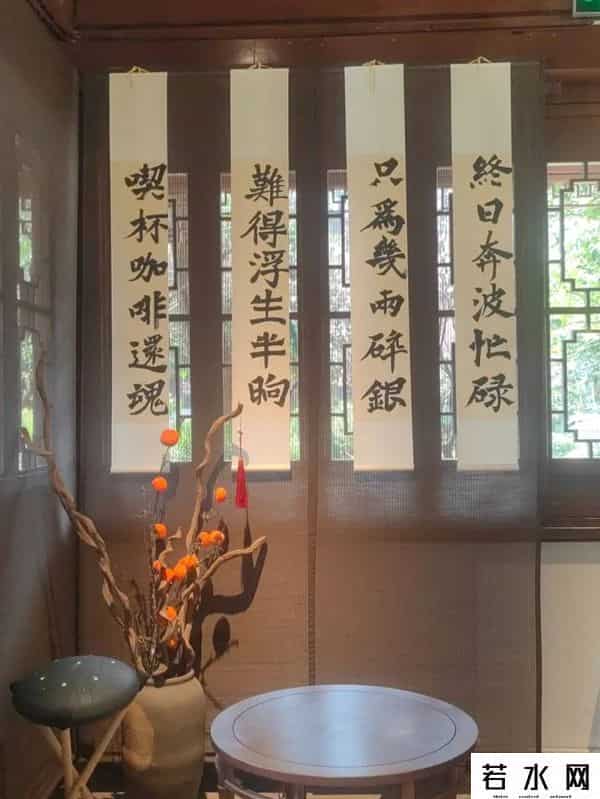 終日奔波忙碌
只為幾兩碎銀
難得浮生半晌
喫杯咖啡還魂
若水网